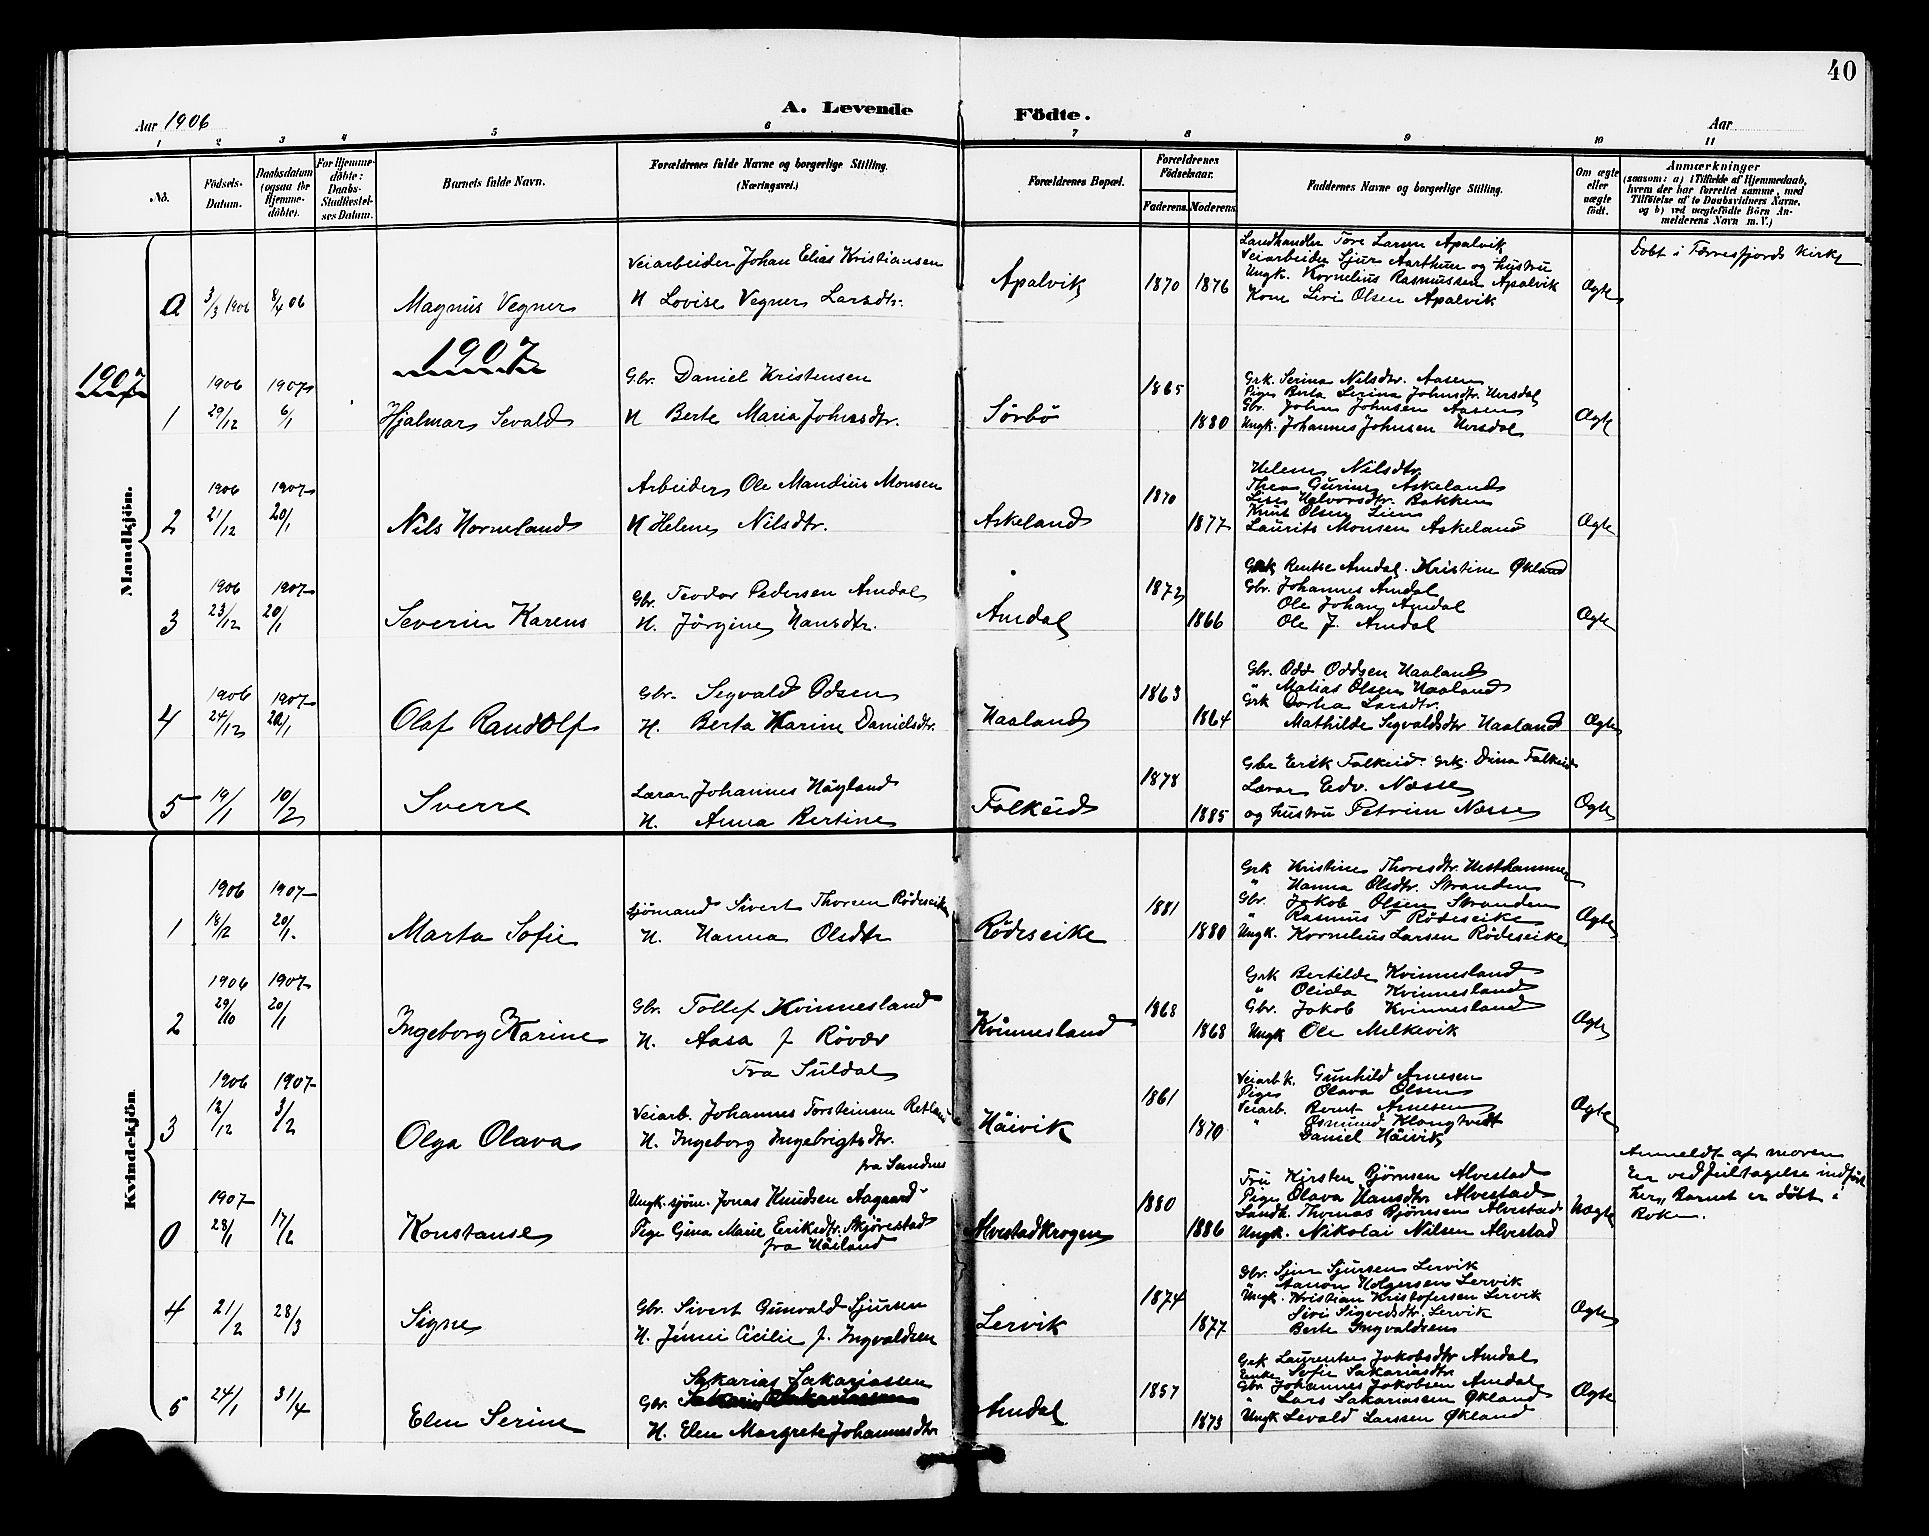 40
A. Levende Födte.
Aar 1906
Aar
1 2 3 4 5 6 7 8 9 10 11
No.
Födsels-Datum.
Daabsdatum (ogsaa for Hjemme-döbte).
For Hjemme-döbte: Daabs-Stadfæstel-ses Datum.
Barnets fulde Navn.
Forældrenes fulde Navne og borgerlige Stilling. (Næringsvei.)
Forældrenes Bopæl.
Forældrenes Födselsaar.
Faderens. Moderens.
Faddernes Navne og borgerlige Stilling.
Om ægte eller uægte födt.
Anmærkninger
(saasom: a) i Tilfælde af Hjemmedaab, hvem der har forrettet samme, med Tilföielse af to Daabsvidners Navne, og b) ved uægtefödte Börn An-melderens Navn m. V.)
Mandkjön.
0 3/3 1906 8/4 06 Magnus Vegner
Veiarbeider Johan Elias Kristiansen
H Lovise Vegner Larsdtr.
Apalvik 1870 1876
Landhandler Tore Larsen Apalvik
Veiarbeider Sjur Aarthun og hustru
Ungk. Kornelius Rasmussen Apalvik
Kone Sivi Olsen Apalvik
Ægte
Døbt i Førresfjords Kirke
1907
1907
1 1906 29/12 1907 6/1 Hjalmar Sevald
Gbr. Daniel Kristensen
H Berte Maria Johnsdtr.
Sørbø 1865 1880
Grk. Serina Nilsdtr. Aasen
Pige Berta Serina Johnsdtr. Uersdal
Gbr. John Johnsen Aasen
Ungk. Johannes Johnsen Uersdal
Ægte
2 1906 21/12 1907 20/1 Nils Horneland
Arbeider Ole Mandius Monsen
H Helene Nilsdtr.
Askeland 1870 1877
Helene Nilsdtr.
Thea Gurine Askeland
Lise Halvorsdtr. Bakken
Knut Olsen Lien
Laurits Monsen Askeland
Ægte
3 1906 23/12 1907 20/1 Severin Karens
Gbr. Teodor Pedersen Amdal
H. Jørgine Hansdtr.
Amdal 1872 1866
Grk Rentse Amdal. Kristine Økland
Gbr. Johannes Amdal
Ole Johan Amdal
Ole J. Amdal
Ægte
4 1906 24/12 1907 20/1 Olaf Randolf
Gbr. Segvald Odsen
H. Berta Karine Danielsdtr.
Haaland 1863 1864
Gbr. Odd Oddsen Haaland
" Matias Olsen Haaland
Grk Dorthea Larsdtr.
Mathilde Segvaldsdtr. Haaland
Ægte
5 19/1 10/2 Sverre
Lærer Johannes Høyland
H. Anna Bertine
Falkeid 1878 1885
Gbr Erik Falkeid. Grk. Dina Falkeid
Lærer Edv. Næsse
og hustru Petrine Næsse
Ægte
Kvindekjön.
1 1906 18/12 1907 20/1. Marta Sofie
Sjømand Sivert Thorsen Rødeseike
H. Hanna Olsdtr
Rødeseike 1881 1880
Grk Kristine Thoresdtr. Uesthammer
" Hanna Olsdtr. Stranden
Gbr. Jakob Olsen Stranden
" Rasmus T Rødeseike
Ungk. Kornelius Larsen Rødeseike
Ægte
2 1906 29/10 1907 20/1 Ingeborg Karine
Gbr. Tollef Kvinnesland
H. Aasa f Røvær
Fra Suldal
Kvinnesland 1868 1868
Grk Bertilde Kvinnesland
" Olida Kvinnesland
Gbr. Jakob Kvinnesland
Ungk Ole Melkevik
Ægte
3 1906 12/12 1907 3/2 Olga Olava
Veiarb. Johannes Torsteinsen
H. Ingeborg Ingebrigtsdtr.
fra Sandnes
Høivik 1861 1870
Veiarb k. Gunhild Arnesen
Pige Olava Olsen
Veiarb. Bernt Arnesen
" Osmund Klongtveit
Daniel Høivik
Ægte
0 1907 28/1 17/2 Konstanse
Ungk. sjøm. Jonas Knudsen Aagaard
Pige Gina Marie Eriksdtr. Skjørestad
fra Høiland
Alvestadkrogen 1880 1886
Fru Kirsten Bjørnsen Alvestad
Pige Olava Hansdtr Alvestad
Landh. Thomas Bjørnsen Alvestad
Ungk. Nikolai Nilsen Alvestad
Uægte
Anmeldt af moren
Er ved feiltagelse indført
her, Barnet er døbt i
Bokn.
4 21/2 28/3 Signe
Gbr. Sivert Gunvald Sjursen
H. Jenni Cicilie f. Ingvaldsen
Lervik 1874 1877
Gbr. Sjur Sjursen Lervik
" Aanon Holgersen Lervik
Ungk. Kristian Kristofersen Lervik
Sivi Sigvedsdtr. Lervik
Berte Ingvaldsen
Ægte
5 24/1 31/4 Elen Serine
Sakarias Sakariassen
Gbr.
H. Elen Margrete Johannesdtr.
Amdal 1857 1873
Grk Laurentse Jakobsdtr Amdal
Enke Sofie Sakariasdtr.
Gbr Johannes Jakobsen Amdal
" Lars Sakariassen Økland
Ungk Sevald Larssen Økland
Ægte